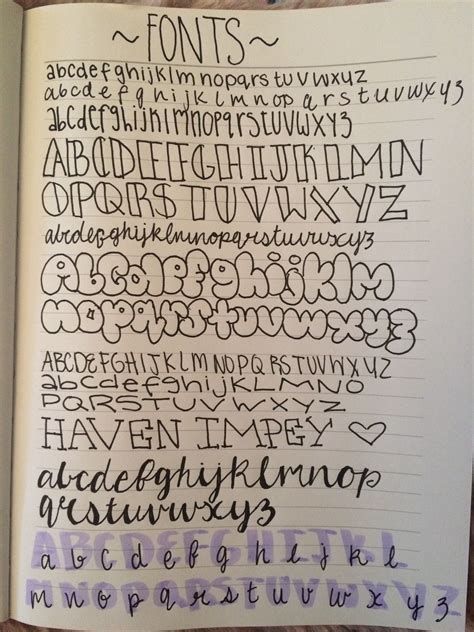 ~FONTS~
abcdefghijklmnopqrstuvwxyz
abcdefghijklmnopqrstuvwxyz
abcdefghijklmnopqrstuvwxyz
ABCDEFGHIJKLMN
OPQRSTUVWXYZ
abcdefghijklmnopqrstuvwxyz
Abcdefghijklm
nopqrstuvwxyz
ABCDEFGHIJKLMNOPQRSTUVWXYZ
abcdefghIJKLMNO
PQRSTUVWXYZ
HAVEN IMPEY ♡
abcdefghijklmnop
qrstuvwxyz
ABCDEFGHIJKL
a b c d e f g h i j k l
MNOPQRSTUVWXYZ
m n o p q r s t u v w x y z